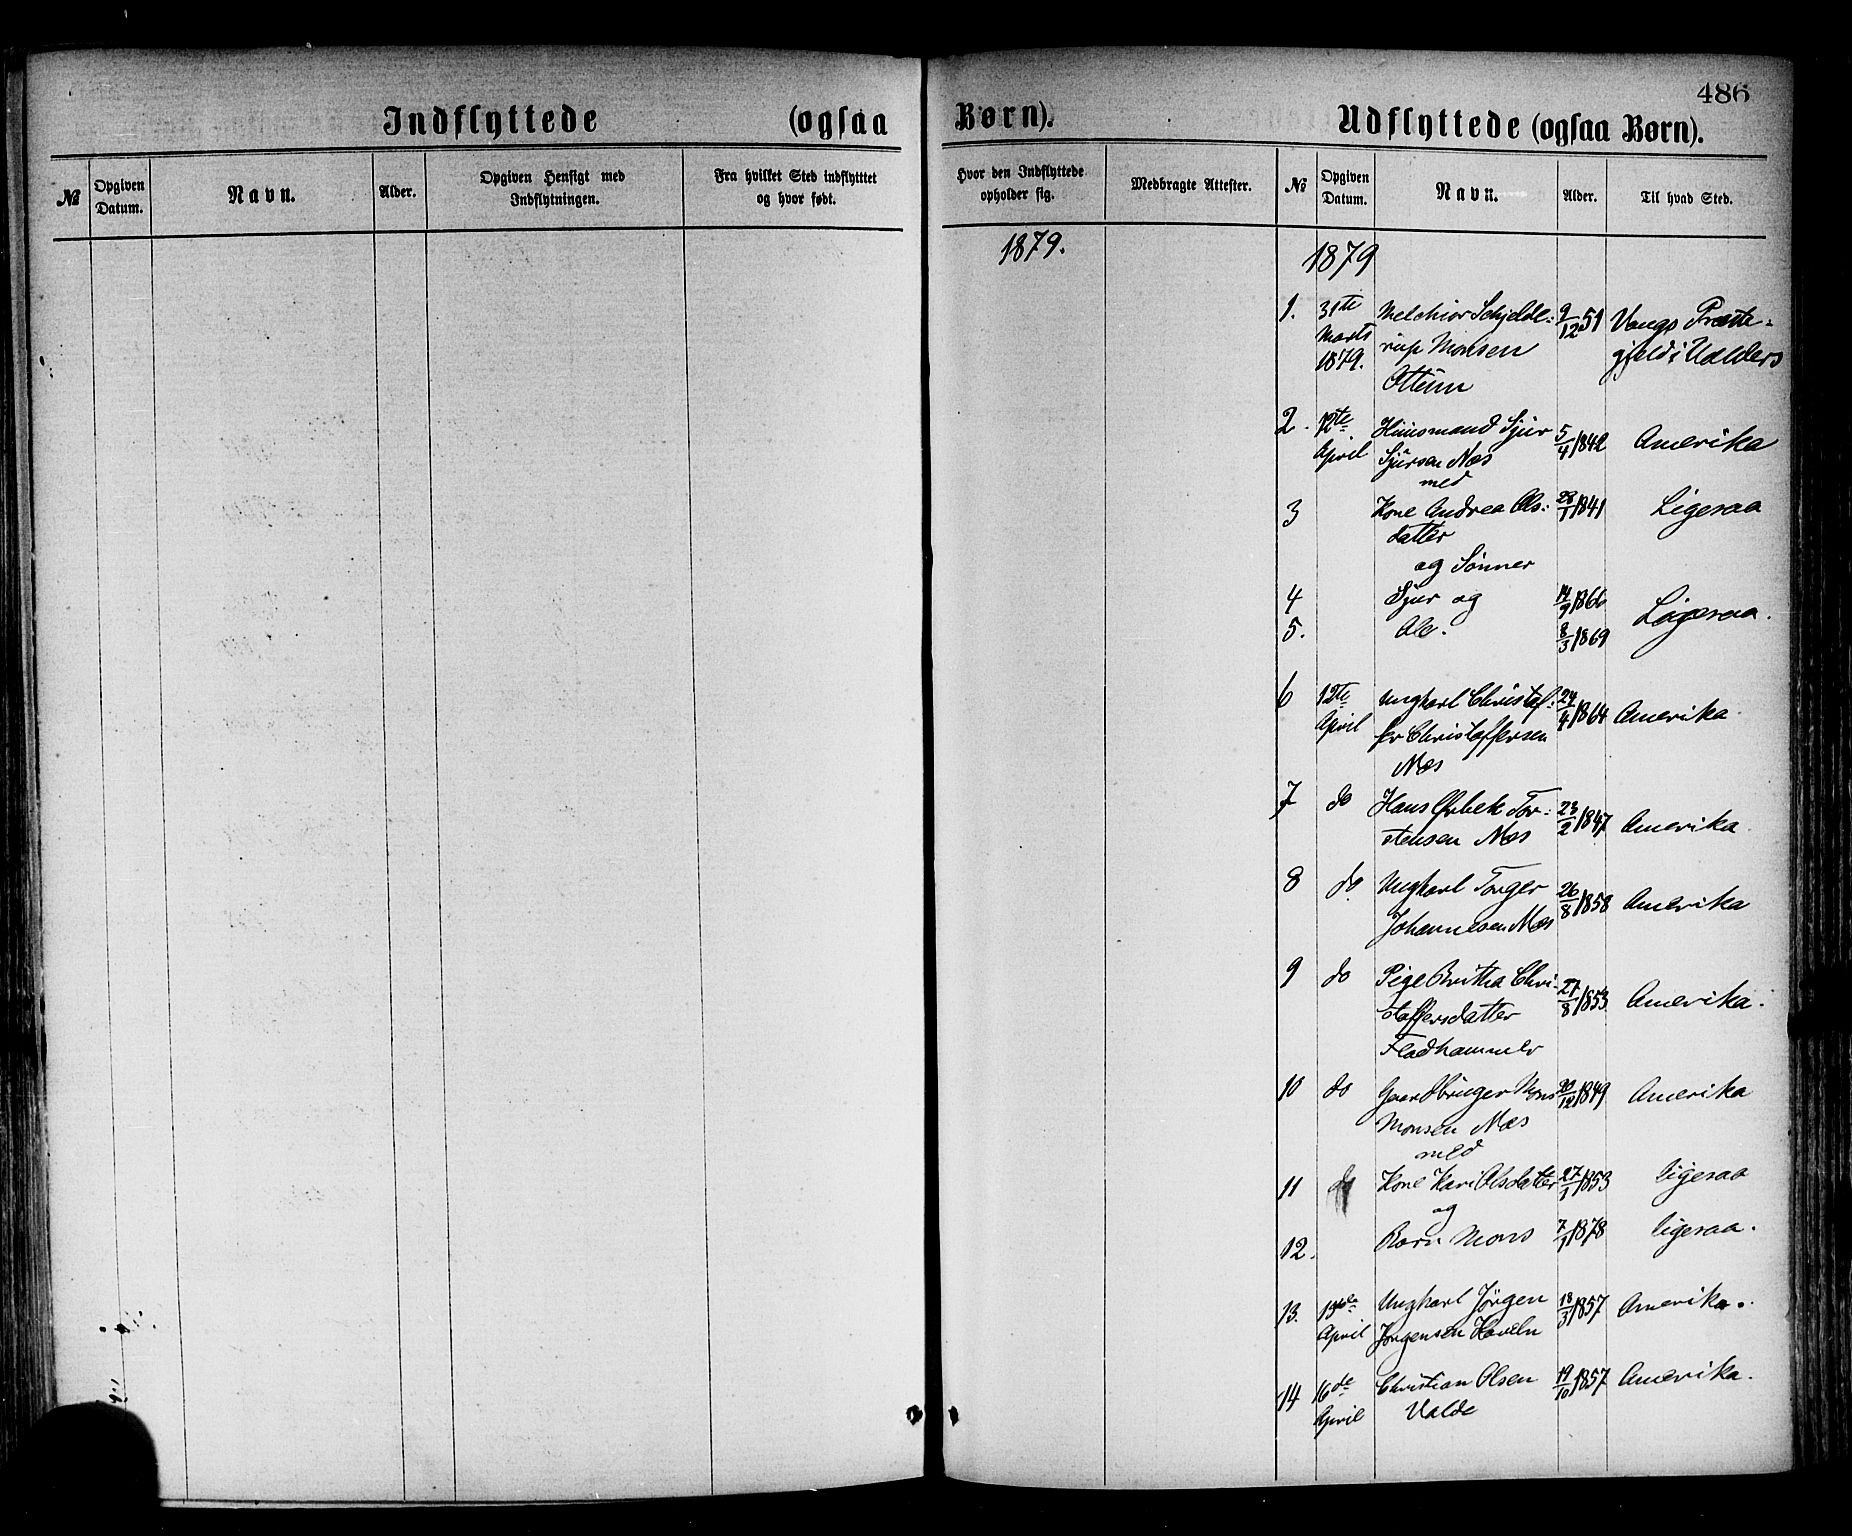 486
Indflyttede (ogsaa Børn).
Udflyttede (ogsaa Børn).
№ Opgiven Datum. Navn. Alder. Opgiven Hensigt med Indflytningen. Fra hvilket Sted indflytttet og hvor født. Hvor den Indflyttede opholder sig. Medbragte Attester.
№ Opgiven Datum. Navn. Alder. Til hvad Sted.
1879.
1879
1. 31te Melchior Schjelde- 9/12 51 Vangs Præste-
Marts rup Monsen gjeld i Valders
1879. Ottum
2. 12te Huusmand Sjur 5/4 1842 Amerika
April Sjursen Næs
med
3 Kone Andrea Ols- 28/1 1841 Ligesaa
datter
og Sønner
4 Sjur og 14/9 1866 Ligesaa.
5. Ole. 8/3 1869
6 12te Ungkarl Christof- 24/4 1864 Amerika
April fer Christoffersen
Næs
7 do Hans Ørbek Tor- 23/2 1847 Amerika
stensen Næs
8 do Ungkarl Torger 26/8 1858 Amerika
Johannesen Næs
9 do Pige Britha Chri- 27/8 1853 Amerika
stoffersdatter
Fladhammer
10 do Gaardbruger Mons 20/12 1849 Amerika
Monsen Næs
med
11 do Kone Kari Olsdatter 27/1 1853 ligesaa
og
12. Barn Mons 7/1 1878 ligesaa.
13. 13de Ungkarl Jörgen 18/3 1857 Amerika.
April Jörgensen
14 16de Christian Olsen 19/10 1857 Amerika.
April Valde